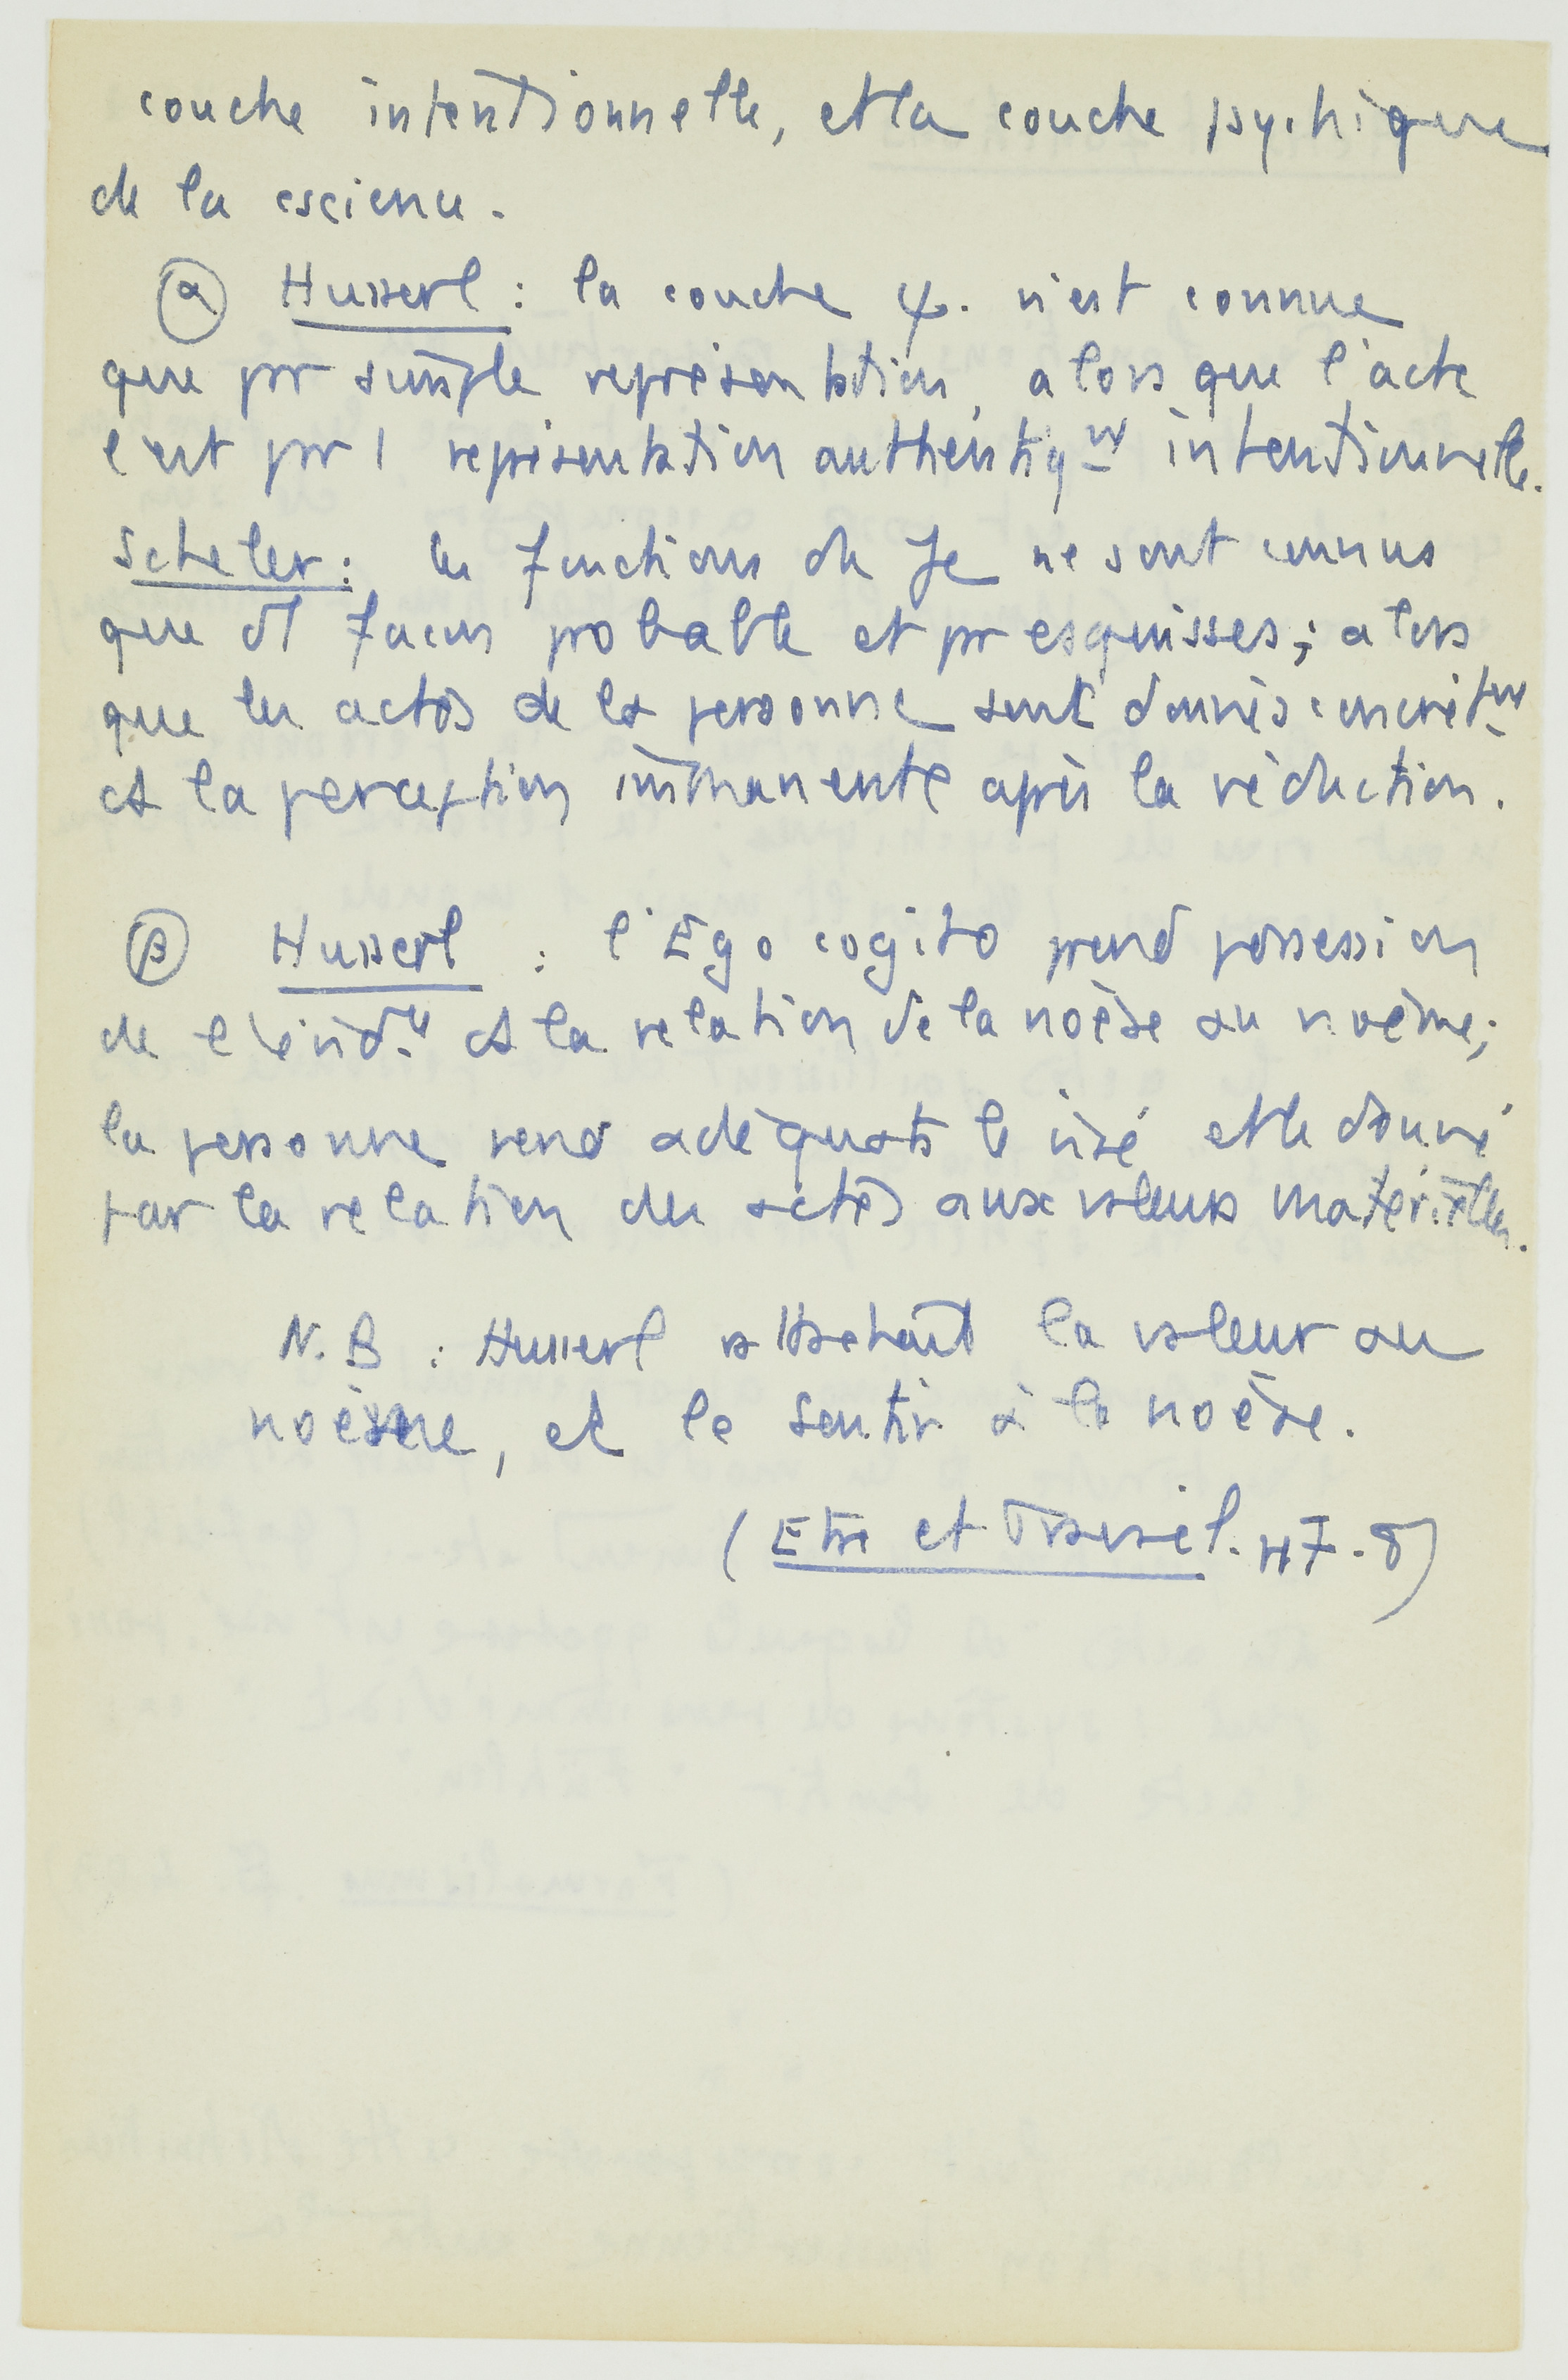 couche intentionnelle, et la couche psychique
de la cscience.
α Husserl : la couche ψ. n'est connue
que pr simple représentation, alors que l'acte
l'est pr 1 représentation authentiqnt intentionnelle.
Scheler : les fonctions du Je ne sont connues
que d'1 façon probable et pr esquisses ; alors
que les actes de la personne sont donnés concrètnt
ds la perception immanente après la réduction.
β Husserl : l'Ego cogito prend possession
de l'évidce ds la relation de la noèse au noème ;
la personne rend adéquats le visé et le donné
par la relation des actes aux valeurs matérielles.
N.B : Husserl rattachait la valeur au
noème, et le sentir à la noèse.
(Etre et 47-8)